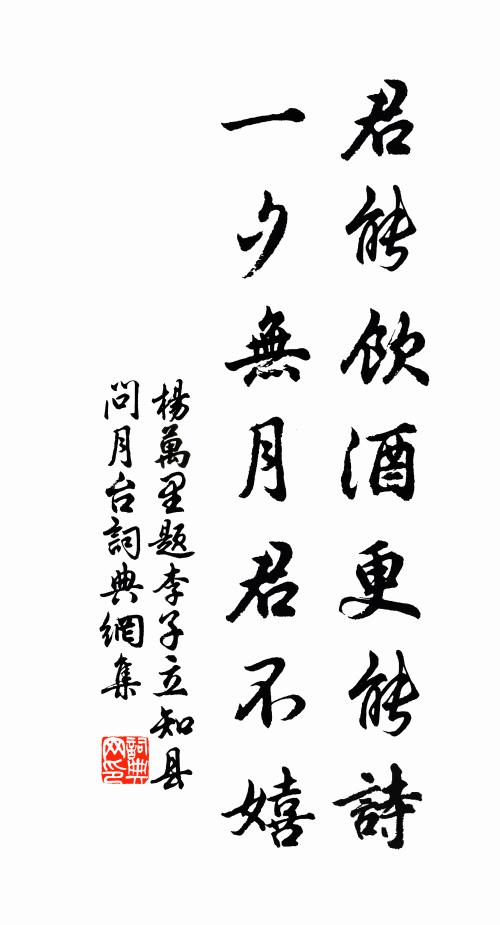 君能飲酒更能詩
一夕無月君不嬉
楊萬里題李子立知县
問月台詞典網集
詞典
网印